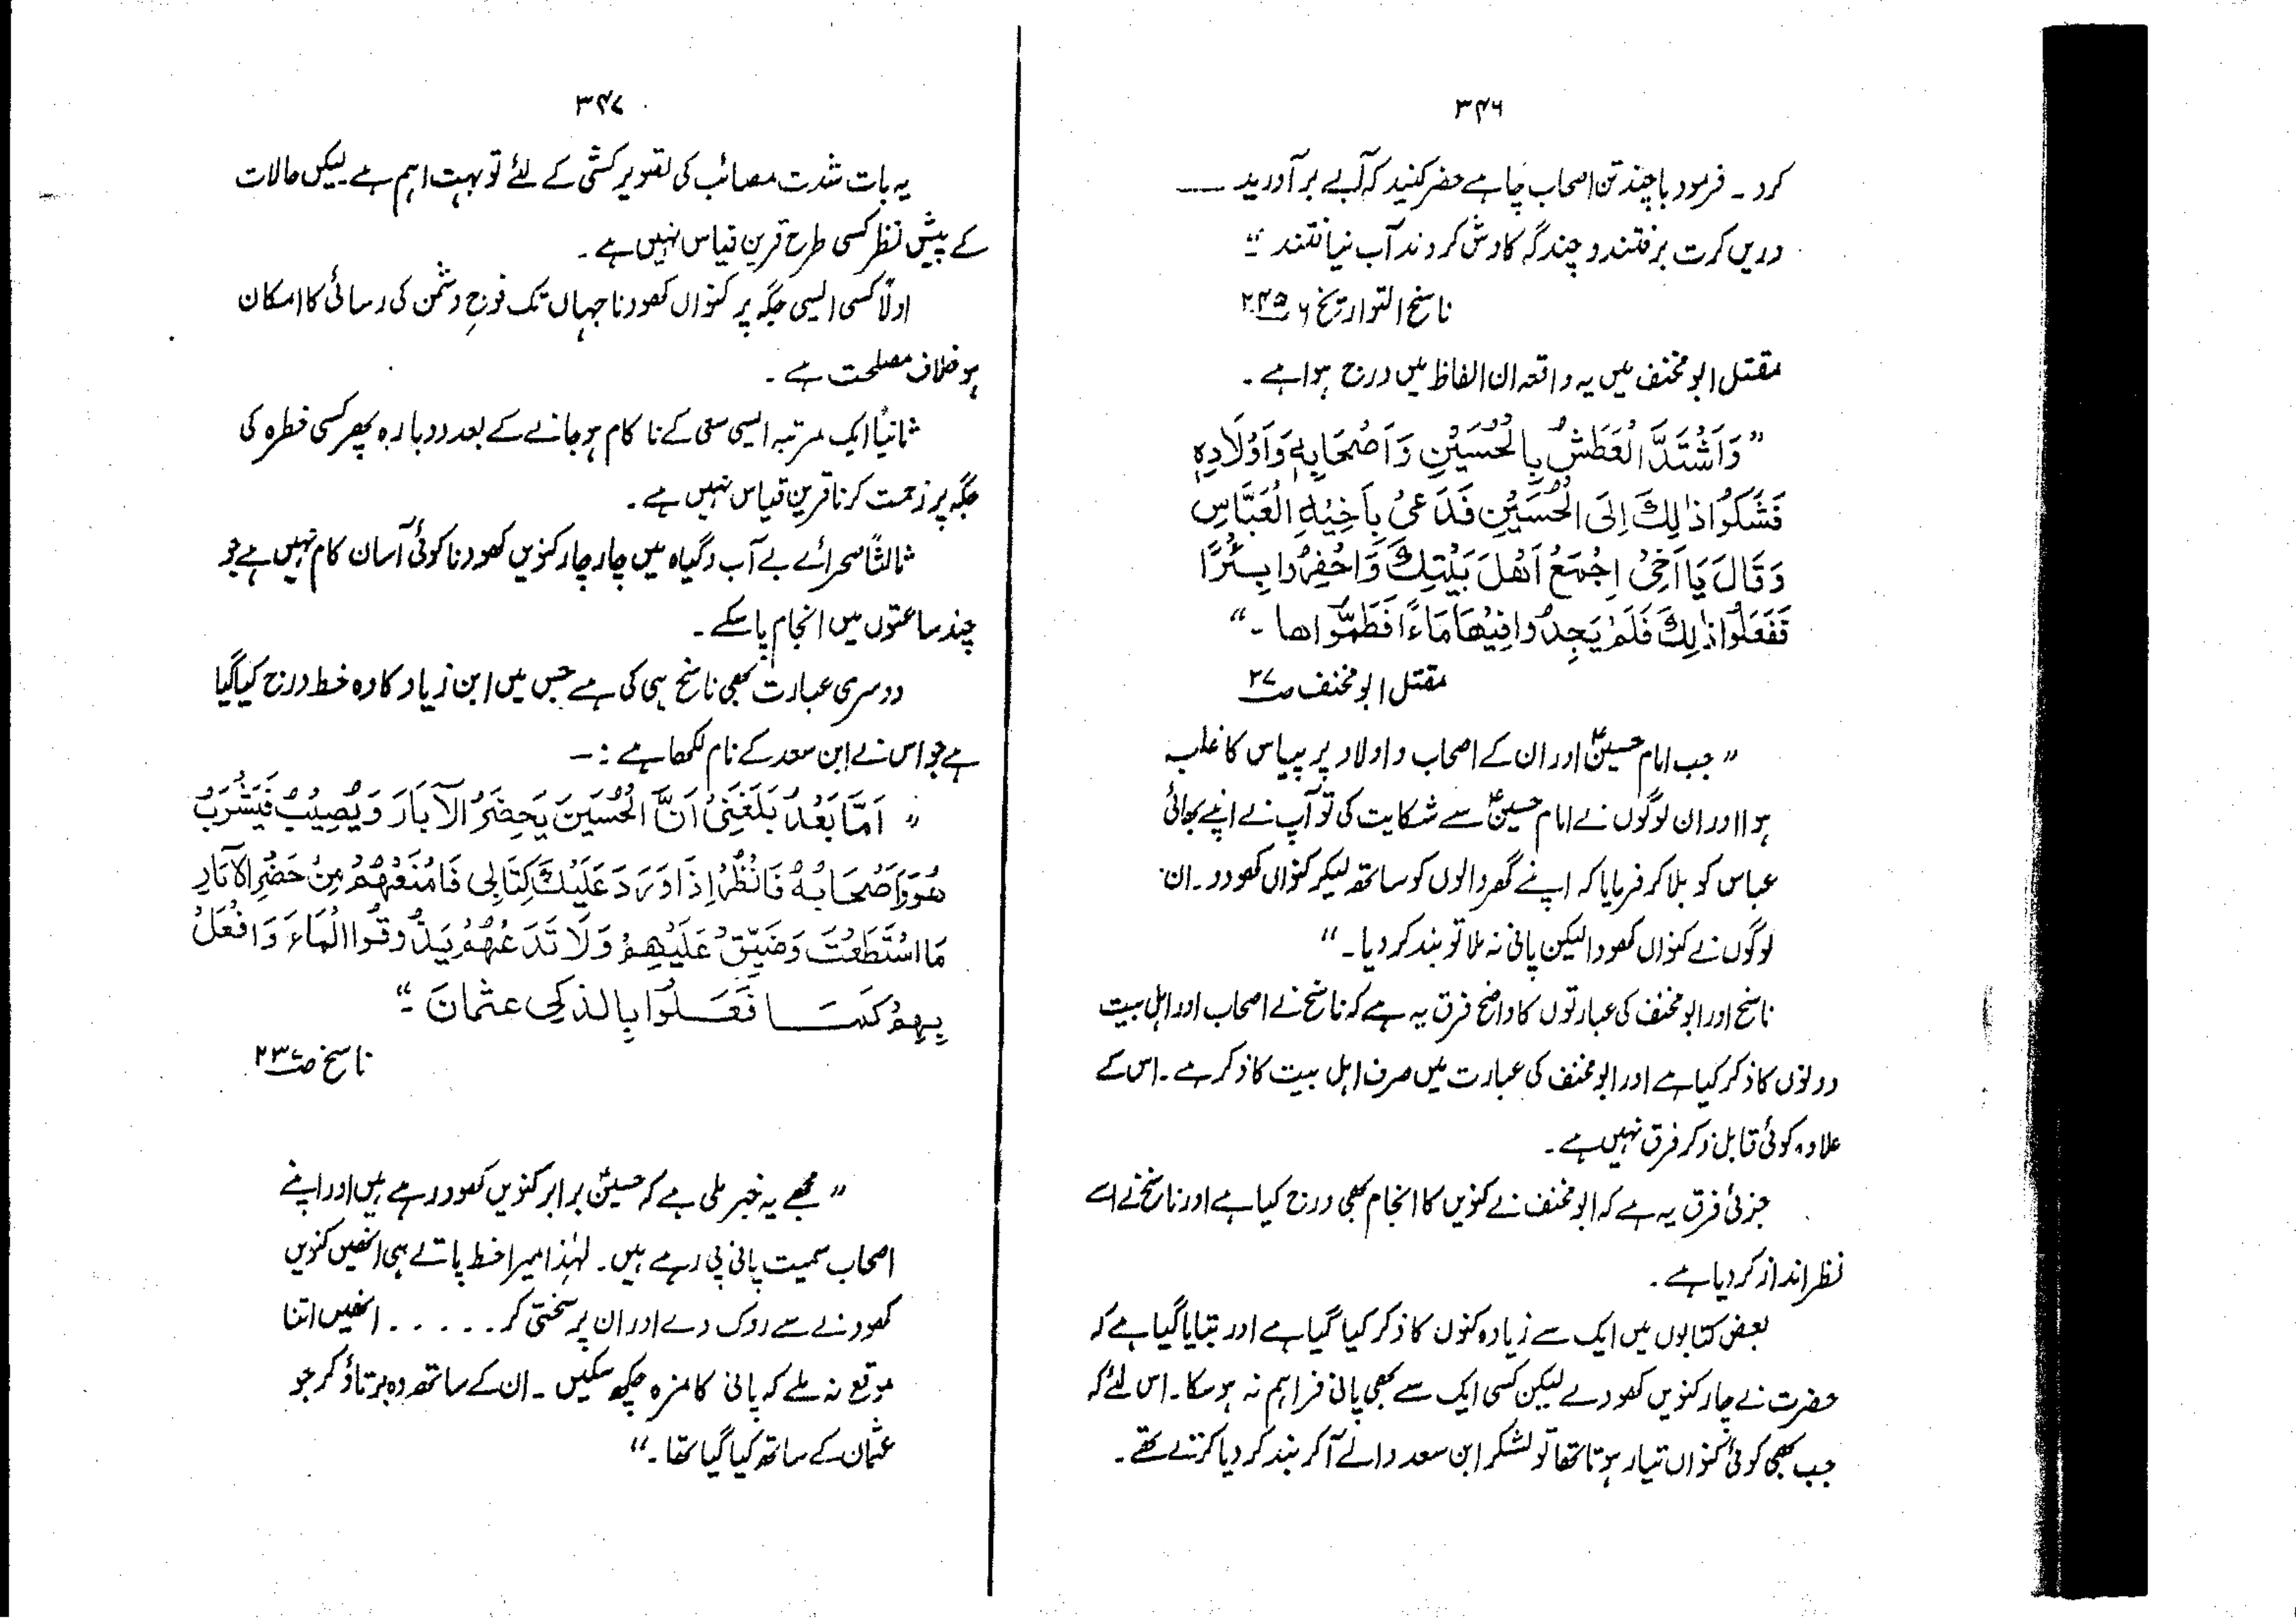 ۳۴۶
کرد ۔ فرمود با چند تن اصحاب چاہے حضر کنید کہ آبے بر آورید ــــ
دریں کرت برفتند و چندگہ کاوش کردند آب نیافتند ؛"
ناسخ التواریخ ۶ ص۲۴۵
مقتل ابو مخنف میں یہ واقعہ ان الفاظ میں درج ہوا ہے ۔
"وَاَشْتَدَّ الْعَطَشُ بِالْحُسَيْنِ وَاَصْحَابِهٖ وَاَوْلَادِهٖ
فَشَكَوْا ذٰلِكَ اِلَى الْحُسَيْنِ فَدَعىٰ بِاَخِيْهِ الْعَبَّاسِ
وَقَالَ يَا اَخِىْ اِجْمَعْ اَهْلَ بَيْتِكَ وَاحْفِرُوا بِئْرًا
فَفَعَلُوْا ذٰلِكَ فَلَمْ يَجِدُوا فِيْهَا مَاءً فَطَمُّوْاها ۔"
مقتل ابو مخنف ص۲۷
"جب امام حسینؑ اور ان کے اصحاب و اولاد پر پیاس کا غلبہ
ہوا اور ان لوگوں نے امام حسینؑ سے شکایت کی تو آپ نے اپنے بھائی
عباس کو بلا کر فرمایا کہ اپنے گھر والوں کو ساتھ لیکر کنواں کھودو۔ ان
لوگوں نے کنواں کھودا لیکن پانی نہ ملا تو بند کر دیا۔"
ناسخ اور ابو مخنف کی عبارتوں کا واضح فرق یہ ہے کہ ناسخ نے اصحاب اور اہل بیت
دونوں کا ذکر کیا ہے اور ابو مخنف کی عبارت میں صرف اہل بیت کا ذکر ہے ۔ اس کے
علاوہ کوئی قابل ذکر فرق نہیں ہے ۔
جزئی فرق یہ ہے کہ ابو مخنف نے کنویں کا انجام بھی درج کیا ہے اور ناسخ نے اسے
نظر انداز کر دیا ہے ۔
بعض کتابوں میں ایک سے زیادہ کنوں کا ذکر کیا گیا ہے اور بتایا گیا ہے کہ
حضرت نے چار کنویں کھودے لیکن کسی ایک سے بھی پانی فراہم نہ ہو سکا۔ اس لئے کہ
جب بھی کوئی کنواں تیار ہوتا تھا تو لشکر ابن سعد والے آکر بند کر دیا کرتے تھے ۔
۳۴۷
یہ بات شدت مصائب کی تصویر کشی کے لئے تو بہت اہم ہے لیکن حالات
کے پیش نظر کسی طرح قرین قیاس نہیں ہے ۔
اولاً کسی ایسی جگہ پر کنواں کھودنا جہاں تک فوج دشمن کی رسائی کا امکان
ہو خلاف مصلحت ہے ۔
ثانیاً ایک مرتبہ ایسی سعی کے ناکام ہو جانے کے بعد دوبارہ پھر کسی خطرہ کی
جگہ پر زحمت کرنا قرین قیاس نہیں ہے ۔
ثالثاً صحرائے بے آب و گیاہ میں چار چار کنویں کھودنا کوئی آسان کام نہیں ہے جو
چند ساعتوں میں انجام پا سکے ۔
دوسری عبارت بھی ناسخ ہی کی ہے جس میں ابن زیاد کا وہ خط درج کیا گیا
ہے جو اس نے ابن سعد کے نام لکھا ہے :۔
"اَمَّا بَعْدُ بَلَغَنِىْ اَنَّ الْحُسَيْنَ يَحْضَرُ الآبَارَ وَيُصِيْبُ فَيَشْرَبُ
هُوَ وَاَصْحَابُهُ فَانْظُرْ اِذَا وَرَدَ عَلَيْكَ كِتَابِى فَامْنَعْهُمْ مِنْ حَضْرِ الآبَارِ
مَا اسْتَطَعْتَ وَضَيِّقْ عَلَيْهِمْ وَلَا تَدَعْهُمْ يَذُوقُوا الْمَاءَ وَافْعَلْ
بِهِمْ كَمَا فَعَلُوْا بِالذكى عثمان ۔"
ناسخ ص۲۳۷
"مجھے یہ خبر ملی ہے کہ حسینؑ برابر کنویں کھود رہے ہیں اور اپنے
اصحاب سمیت پانی پی رہے ہیں۔ لہٰذا میرا خط پاتے ہی انھیں کنویں
کھودنے سے روک دے اور ان پر سختی کر ۔۔۔۔۔ انھیں اتنا
موقع نہ ملے کہ پانی کا مزہ چکھ سکیں ۔ ان کے ساتھ وہ برتاؤ کر جو
عثمان کے ساتھ کیا گیا تھا۔"